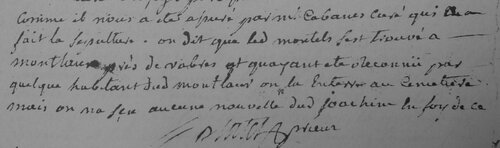 comme il nous a été assuré par mr Cabanes curé qui en a
fait la sepulture. on dit que led mortels sest trouvé a
montlaur près de vabres et quayant eté reconnu par
quelque habitant dud montlaur on la Enterré au cemetiere
mais on na seu aucune nouvelle dud joachim en foy de ce
prieur